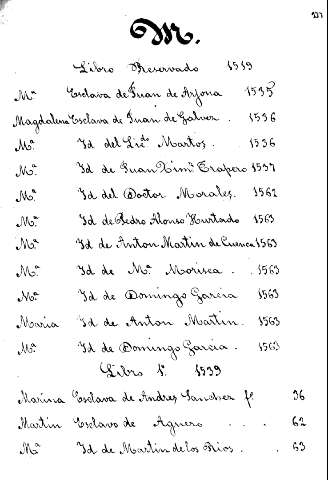 M.
Libro Reservado 1539
Mª Esclava de Juan de Arjona 1535
Magdalena Esclava de Juan de Galvez . 1536
Mª Id del Licdo Martos . 1536
Mª Id de Juan Ximz Trapero 1537
Mª Id del Doctor Morales. 1562
Mª Id de Pedro Alonso Hurtado 1563
Mª Id de Anton Martin de Cuenca 1563
Mª Id de Mª Morisca . . 1563
Mª Id de Domingo Garcia 1563
Maria Id de Anton Martin. 1563
Mª Id de Domingo Garcia . 1563
Libro 1º 1539
Marina Esclava de Andres Sanchez fº 36
Martin Esclavo de Aguero . . . . 62
Mª Id de Martin de los Rios . . 63